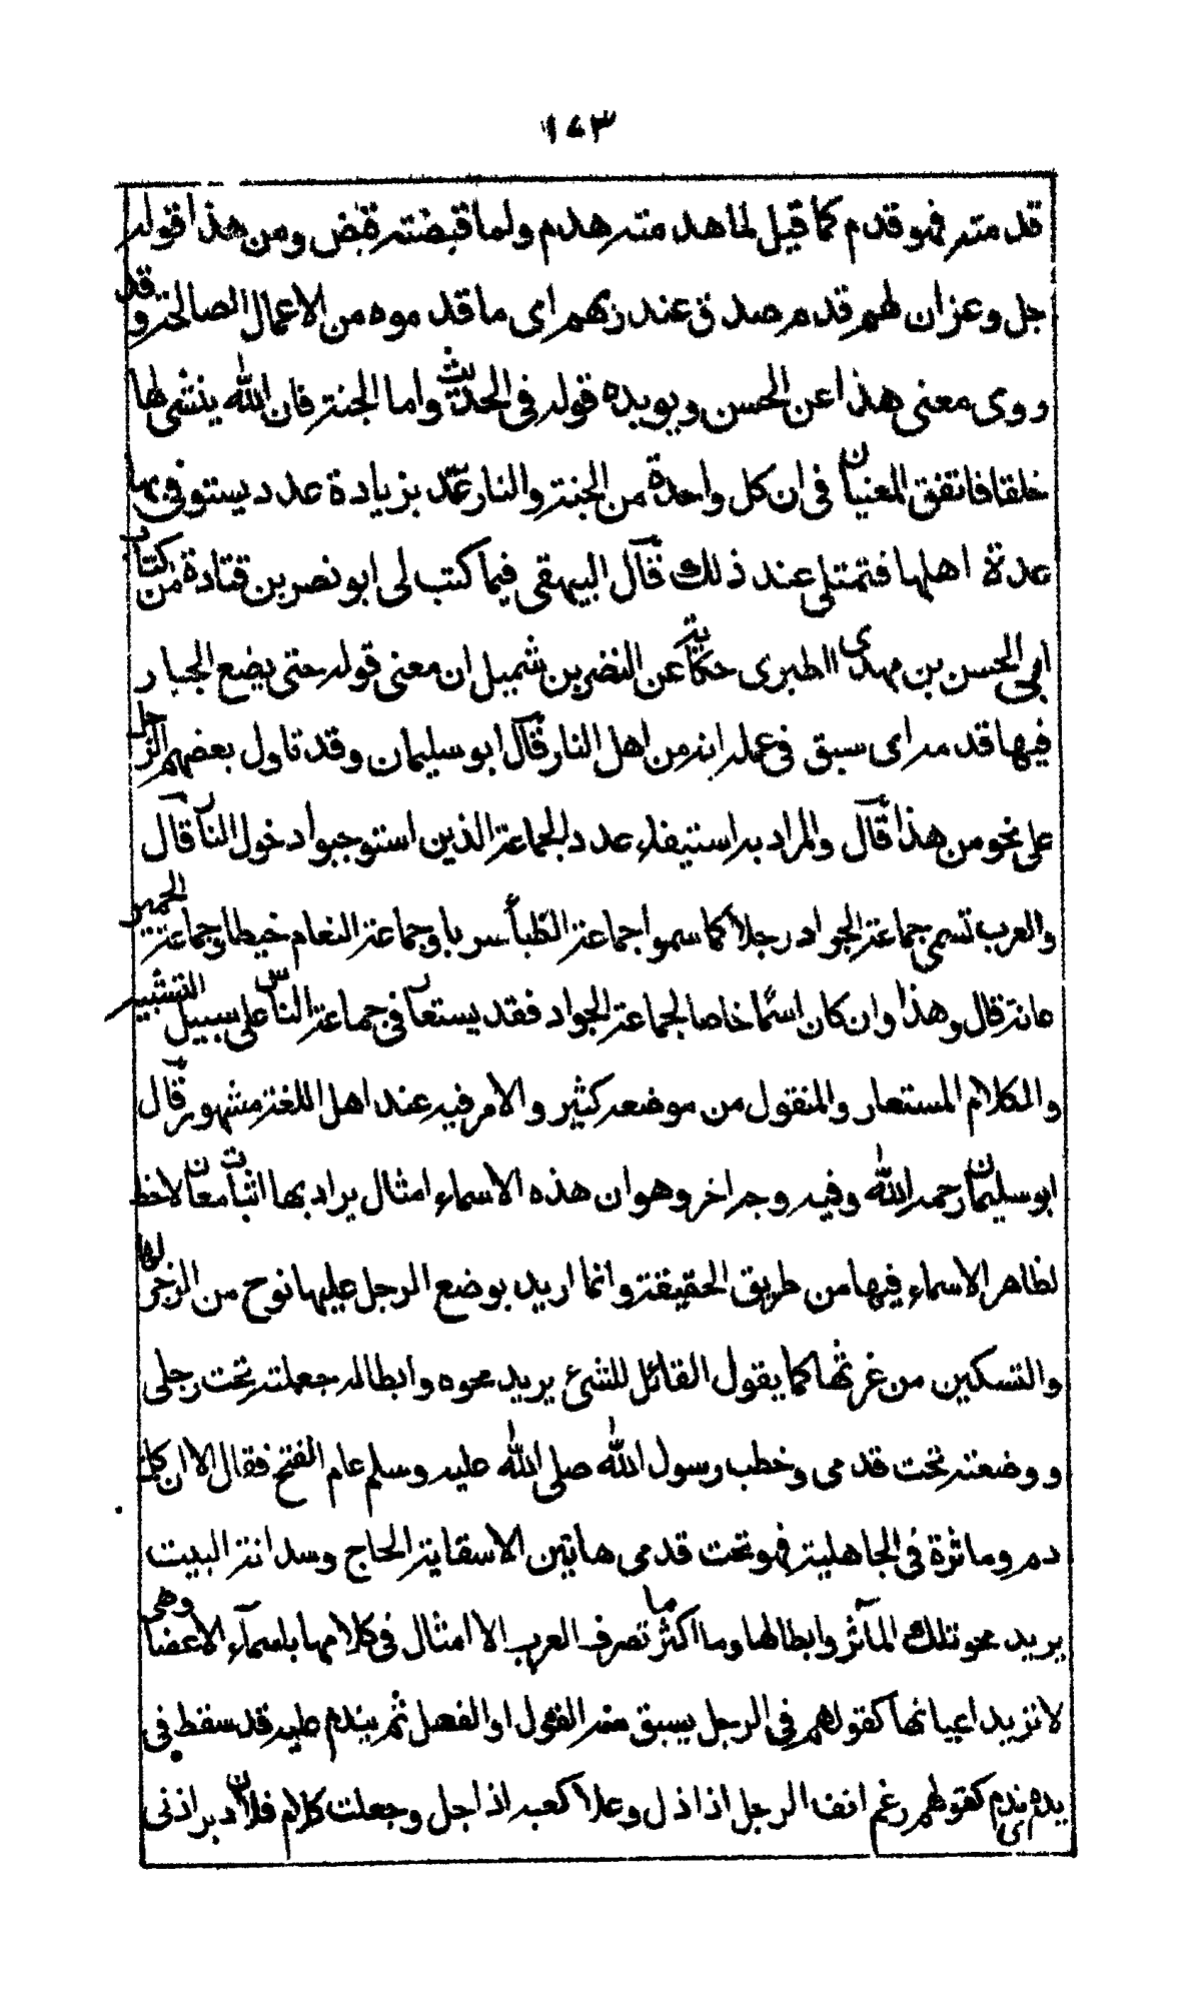 ١٧٣
قدمته فهو قدم كما قيل لما هدمته هدم ولما قبضته قبض ومن هذا قوله
جل وعز ان لهم قدم صدق عند ربهم اى ما قدموه من الاعمال الصالحة وقد
روى معنى هذا عن الحسن ويويده قوله فى الحديث واما الجنة فان الله ينشى لها
خلقا فاتفق المعنيان فى ان كل واحدة من الجنة والنار تمد بزيادة عدد يستوفى بها
عدة اهلها فتمتلى عند ذلك قال البيهقى فيما كتب لى ابو نصر بن قتادة من كتاب
ابى الحسن بن مهدى الطبرى حكاية عن النضر بن شميل ان معنى قوله حتى يضع الجبار
فيها قدمه اى سبق فى عمله انه من اهل النار قال ابو سليمان وقد تاول بعضهم الرجل
على نحو من هذا قال والمراد به استيفاء عدد الجماعة الذين استوجبوا دخول النار قال
والعرب تسمى جماعة الجواد رجلا كما سموا جماعة الظبأ سربا وجماعة النعام خيطا وجماعة الحمير
عانة قال وهذا وان كان اسما خاصا لجماعة الجواد فقد يستعار فى جماعة الناس على سبيل التشبيه
والكلام المستعار والمنقول من موضعه كثير والامر فيه عند اهل اللغة مشهور قال
ابو سليمان رحمه الله وفيه وجه اخر وهو ان هذه الاسماء امثال يراد بها اثبات معان لا حظ
لظاهر الاسماء فيها من طريق الحقيقة وانما اريد بوضع الرجل عليها نوح من الزجر لها
والتسكين من غربها كما يقول القائل للشىء يريد محوه وابطاله جعلته تحت رجلى
ووضعته تحت قدمى وخطب رسول الله صلى الله عليه وسلم عام الفتح فقال الا ان كل
دم وماثرة فى الجاهلية فهو تحت قدمى هاتين الا سقاية الحاج وسدانة البيت
يريد محو تلك المآثر وابطالها وما اكثر ما تصرف العرب الامثال فى كلامها باسماء الاعضا وهى
لا تزيد اعيانها كقولهم فى الرجل يسبق منه القول او الفعل ثم يندم عليه قد سقط فى
يده اى ندم كقولهم رغم انف الرجل اذا ذل وعلا كعبه اذا جل وجعلت كلام فلان دبر اذنى